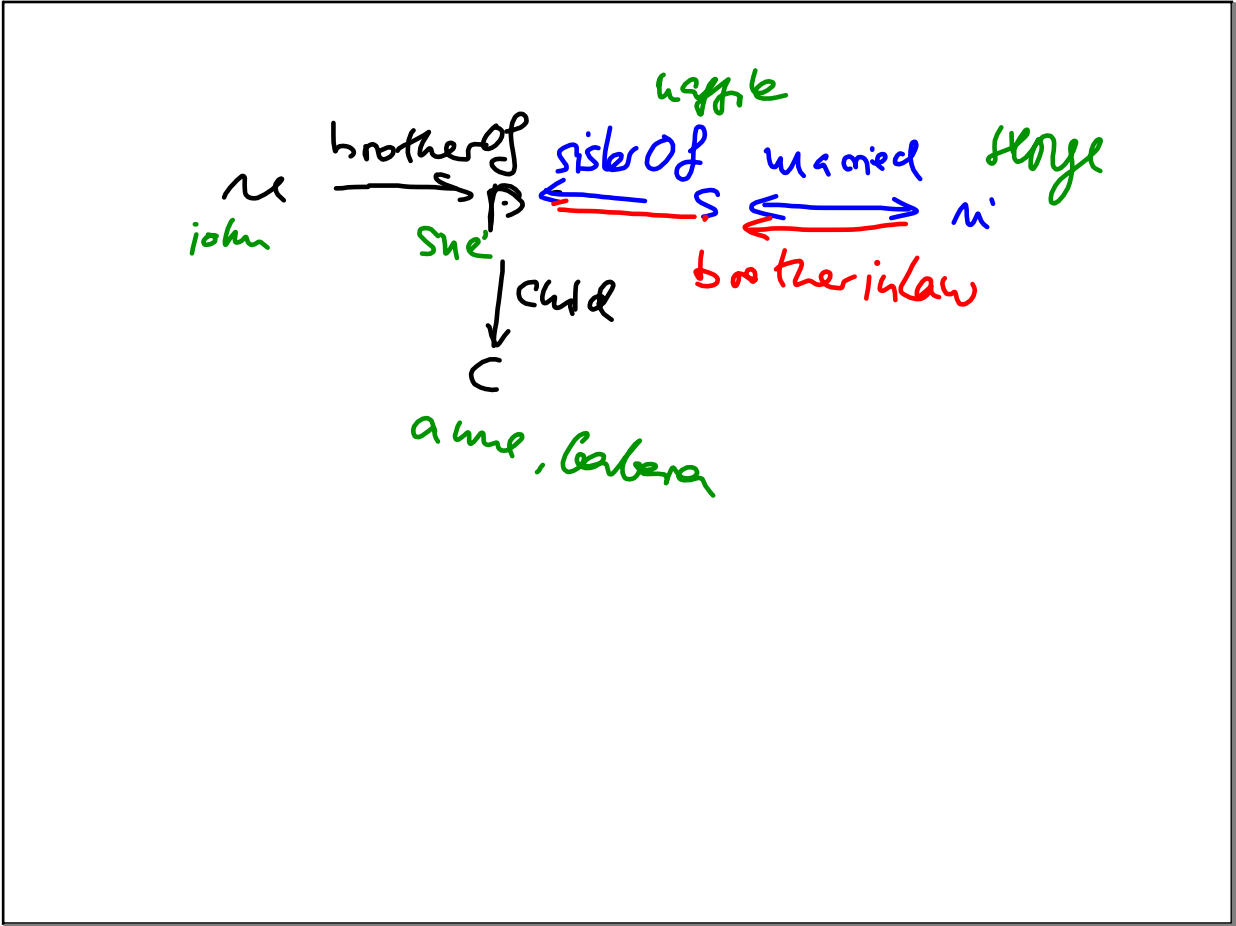 maggie
brotherOf sisterOf married George
u p s u'
john sue
child brotherinlaw
C
anne, barbara